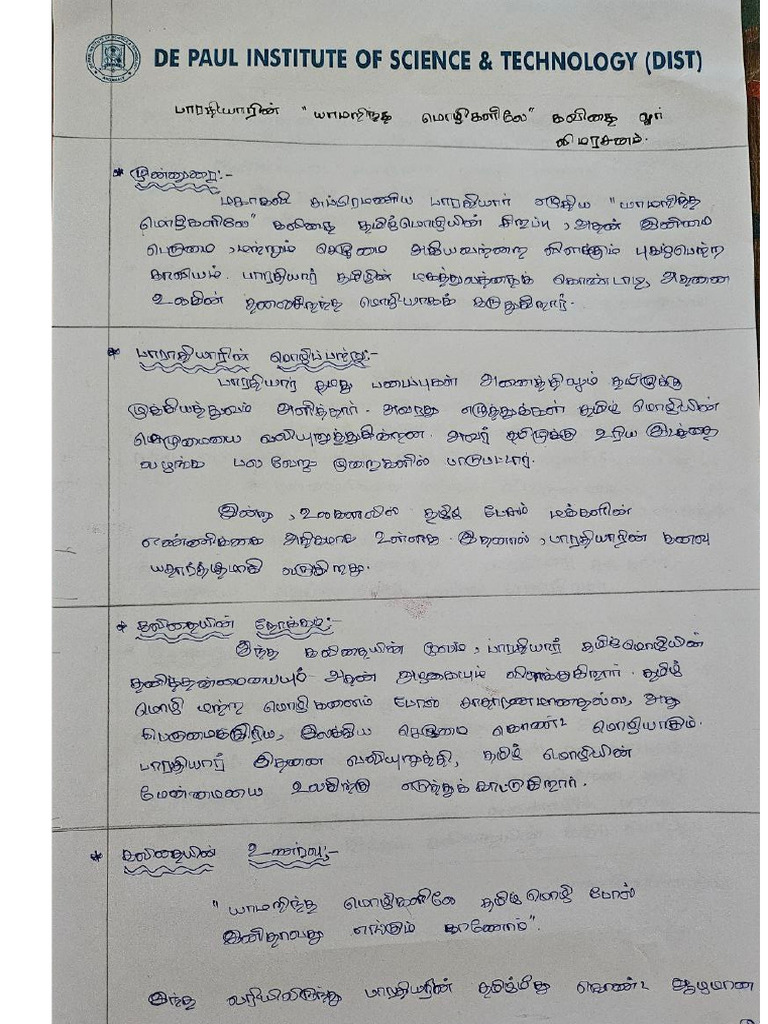 DE PAUL INSTITUTE OF SCIENCE & TECHNOLOGY (DIST)
பாரதியாரின் "யாமறிந்த மொழிகளிலே" கவிதை ஓர்
விமர்சனம்.
* முன்னுரை:-
மகாகவி சுப்ரமணிய பாரதியார் எழுதிய "யாமறிந்த
மொழிகளிலே" கவிதை தமிழ்மொழியின் சிறப்பு, அதன் இனிமை
பெருமை, மற்றும் செழுமை ஆகியவற்றை விளக்கும் புகழ்பெற்ற
காவியம். பாரதியார் தமிழின் மகத்துவத்தைக் கொண்டாடி, அதனை
உலகின் தலைசிறந்த மொழியாகக் கருதுகிறார்.
* பாரதியாரின் மொழிப்பற்று:-
பாரதியார் தமது படைப்புகள் அனைத்திலும் தமிழுக்கு
முக்கியத்துவம் அளித்தார். அவரது எழுத்துக்கள் தமிழ் மொழியின்
செழுமையை வலியுறுத்துகின்றன. அவர் தமிழுக்கு உரிய இடத்தை
வழங்க பல வேறு முறைகளில் பாடுபட்டார்.
இன்று, உலகளவில் தமிழ் பேசும் மக்களின்
எண்ணிக்கை அதிகமாக உள்ளது. இதனால், பாரதியாரின் கனவு
யதார்த்தமாகி வருகிறது.
* கவிதையின் நோக்கம்:-
இந்த கவிதையின் மூலம், பாரதியார் தமிழ்மொழியின்
தனித்தன்மையையும் அதன் அழகையும் விளக்குகிறார். தமிழ்
மொழி மற்ற மொழிகளைம் போல் சாதாரணமானதல்ல, அது
பெருமைக்குரிய, இலக்கிய செழுமை கொண்ட மொழியாகும்.
பாரதியார் இதனை வலியுறுத்தி, தமிழ் மொழியின்
மேன்மையை உலகிற்கு எடுத்துக்காட்டுகிறார்.
* கவிதையின் உணர்வு:-
"யாமறிந்த மொழிகளிலே தமிழ்மொழி போல்
இனிதாவது எங்கும் காணோம்".
இந்த வரியிலிருந்து பாரதியின் தமிழ்மீது கொண்ட ஆழமான